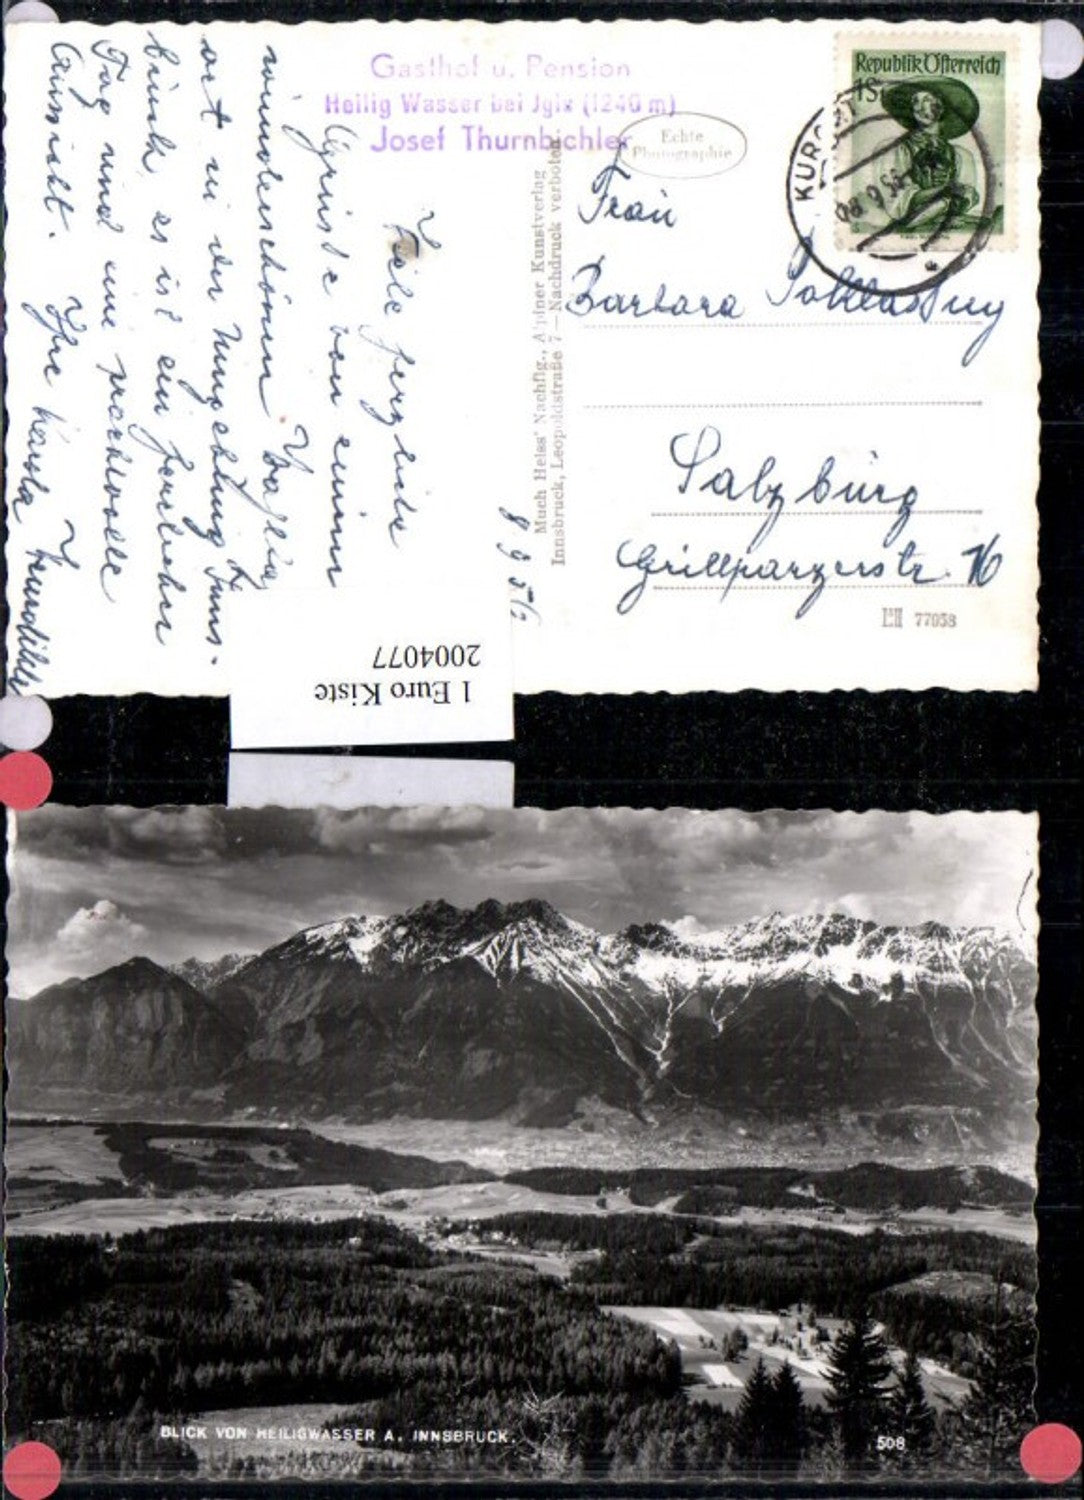 Gasthof u. Pension
Heilig Wasser bei Jgls (1240 m)
Josef Thurnbichler
Echte
Photographie
Republik Österreich
1S
KURORT
8 9 56
Viele herzliche
Grüsse von einem
wunderschönen
ort in der Umgebung Inns-
bruck, es ist ein herrlicher
Tag und eine prachtvolle
Aussicht. Ihre
Much Heiss' Nachflg., Alpiner Kunstverlag
Innsbruck, Leopoldstraße 7 — Nachdruck verboten
Frau
Barbara
Salzburg
Grillparzerstr. 16
77038
1 Euro Kiste
2004077
BLICK VON HEILIGWASSER A. INNSBRUCK.
508